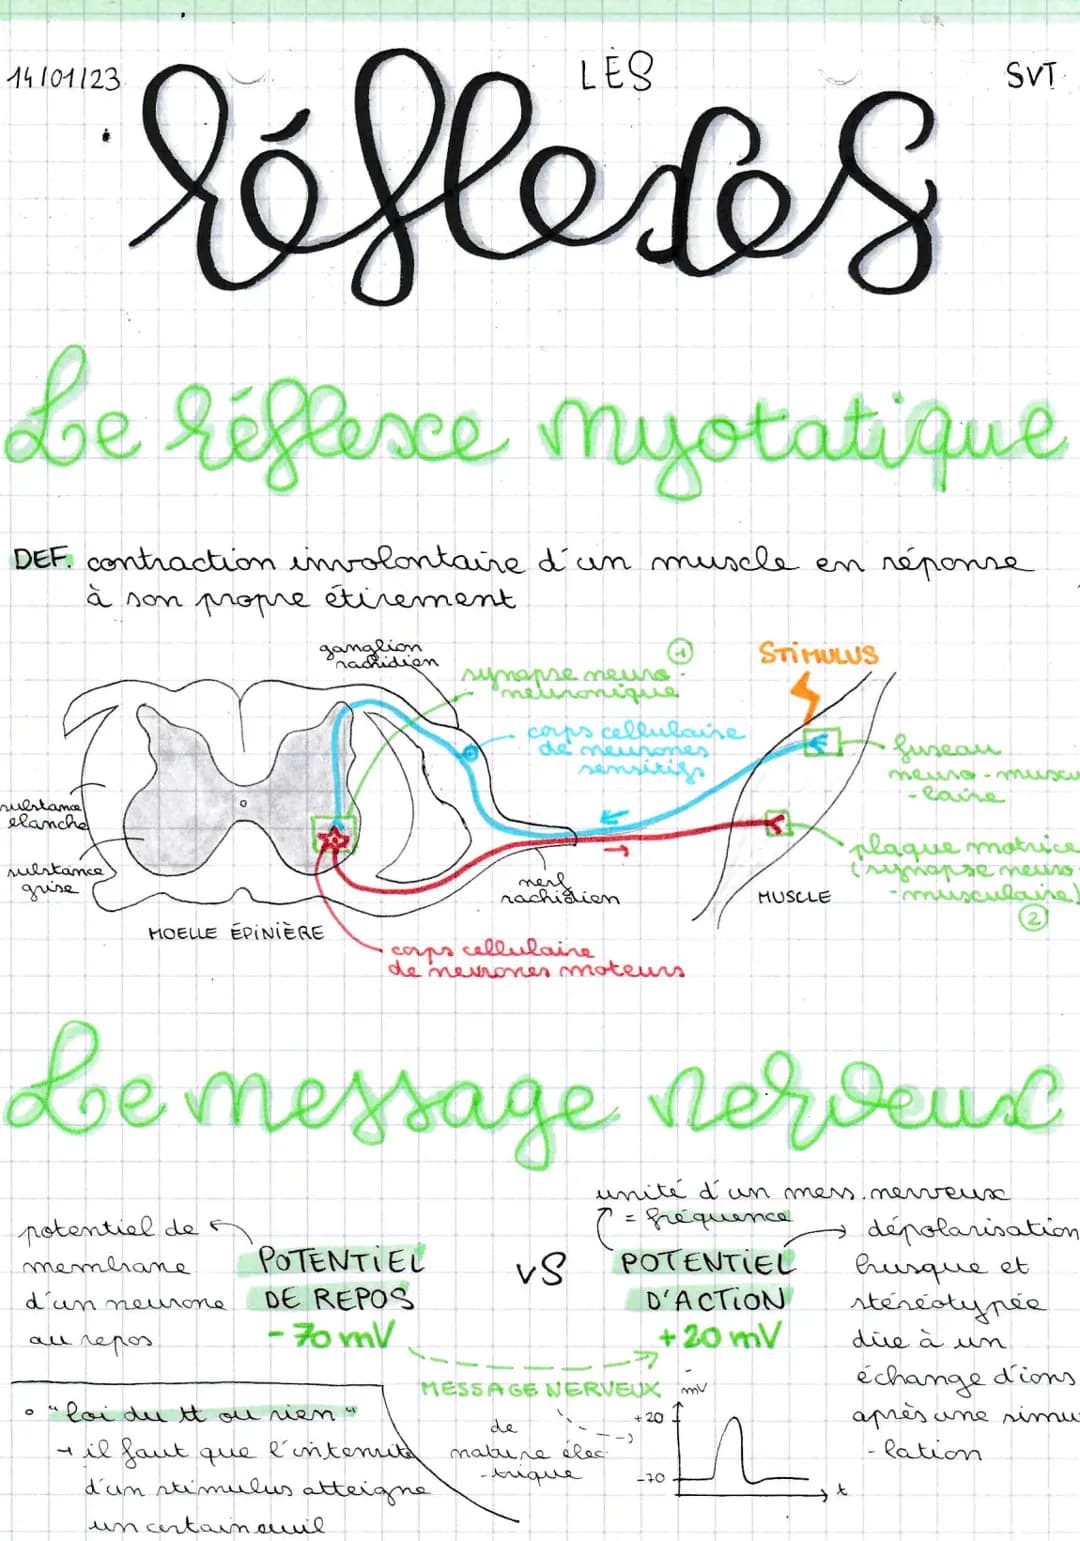 14/01/23
LES
SVT
réflexes
Le réflexe myotatique
DEF. contraction involontaire d'un muscle en réponse
à son propre étirement
ganglion
rachidien
synapse neuro-
neuronique
1
STIMULUS
corps cellulaire
de neurones
sensitifs
fuseau
neuro-muscu
-laire
substance
blanche
substance
grise
plaque motrice
(synapse neuro-
-musculaire)
2
nerf
rachidien
MUSCLE
MOELLE ÉPINIÈRE
corps cellulaire
de neurones moteurs
Le message nerveux
unité d'un mess. nerveux
= fréquence
potentiel de
membrane
d'un neurone
au repos
POTENTIEL
DE REPOS
- 70 mV
VS
POTENTIEL
D'ACTION
+ 20 mV
dépolarisation
brusque et
stéréotypée
due à un
échange d'ions
après une simu
-lation
MESSAGE NERVEUX
de
nature élec
-trique
mV
+20
-70
t
"loi du tt ou rien"
→ il faut que l'intensité
d'un stimulus atteigne
un certain seuil